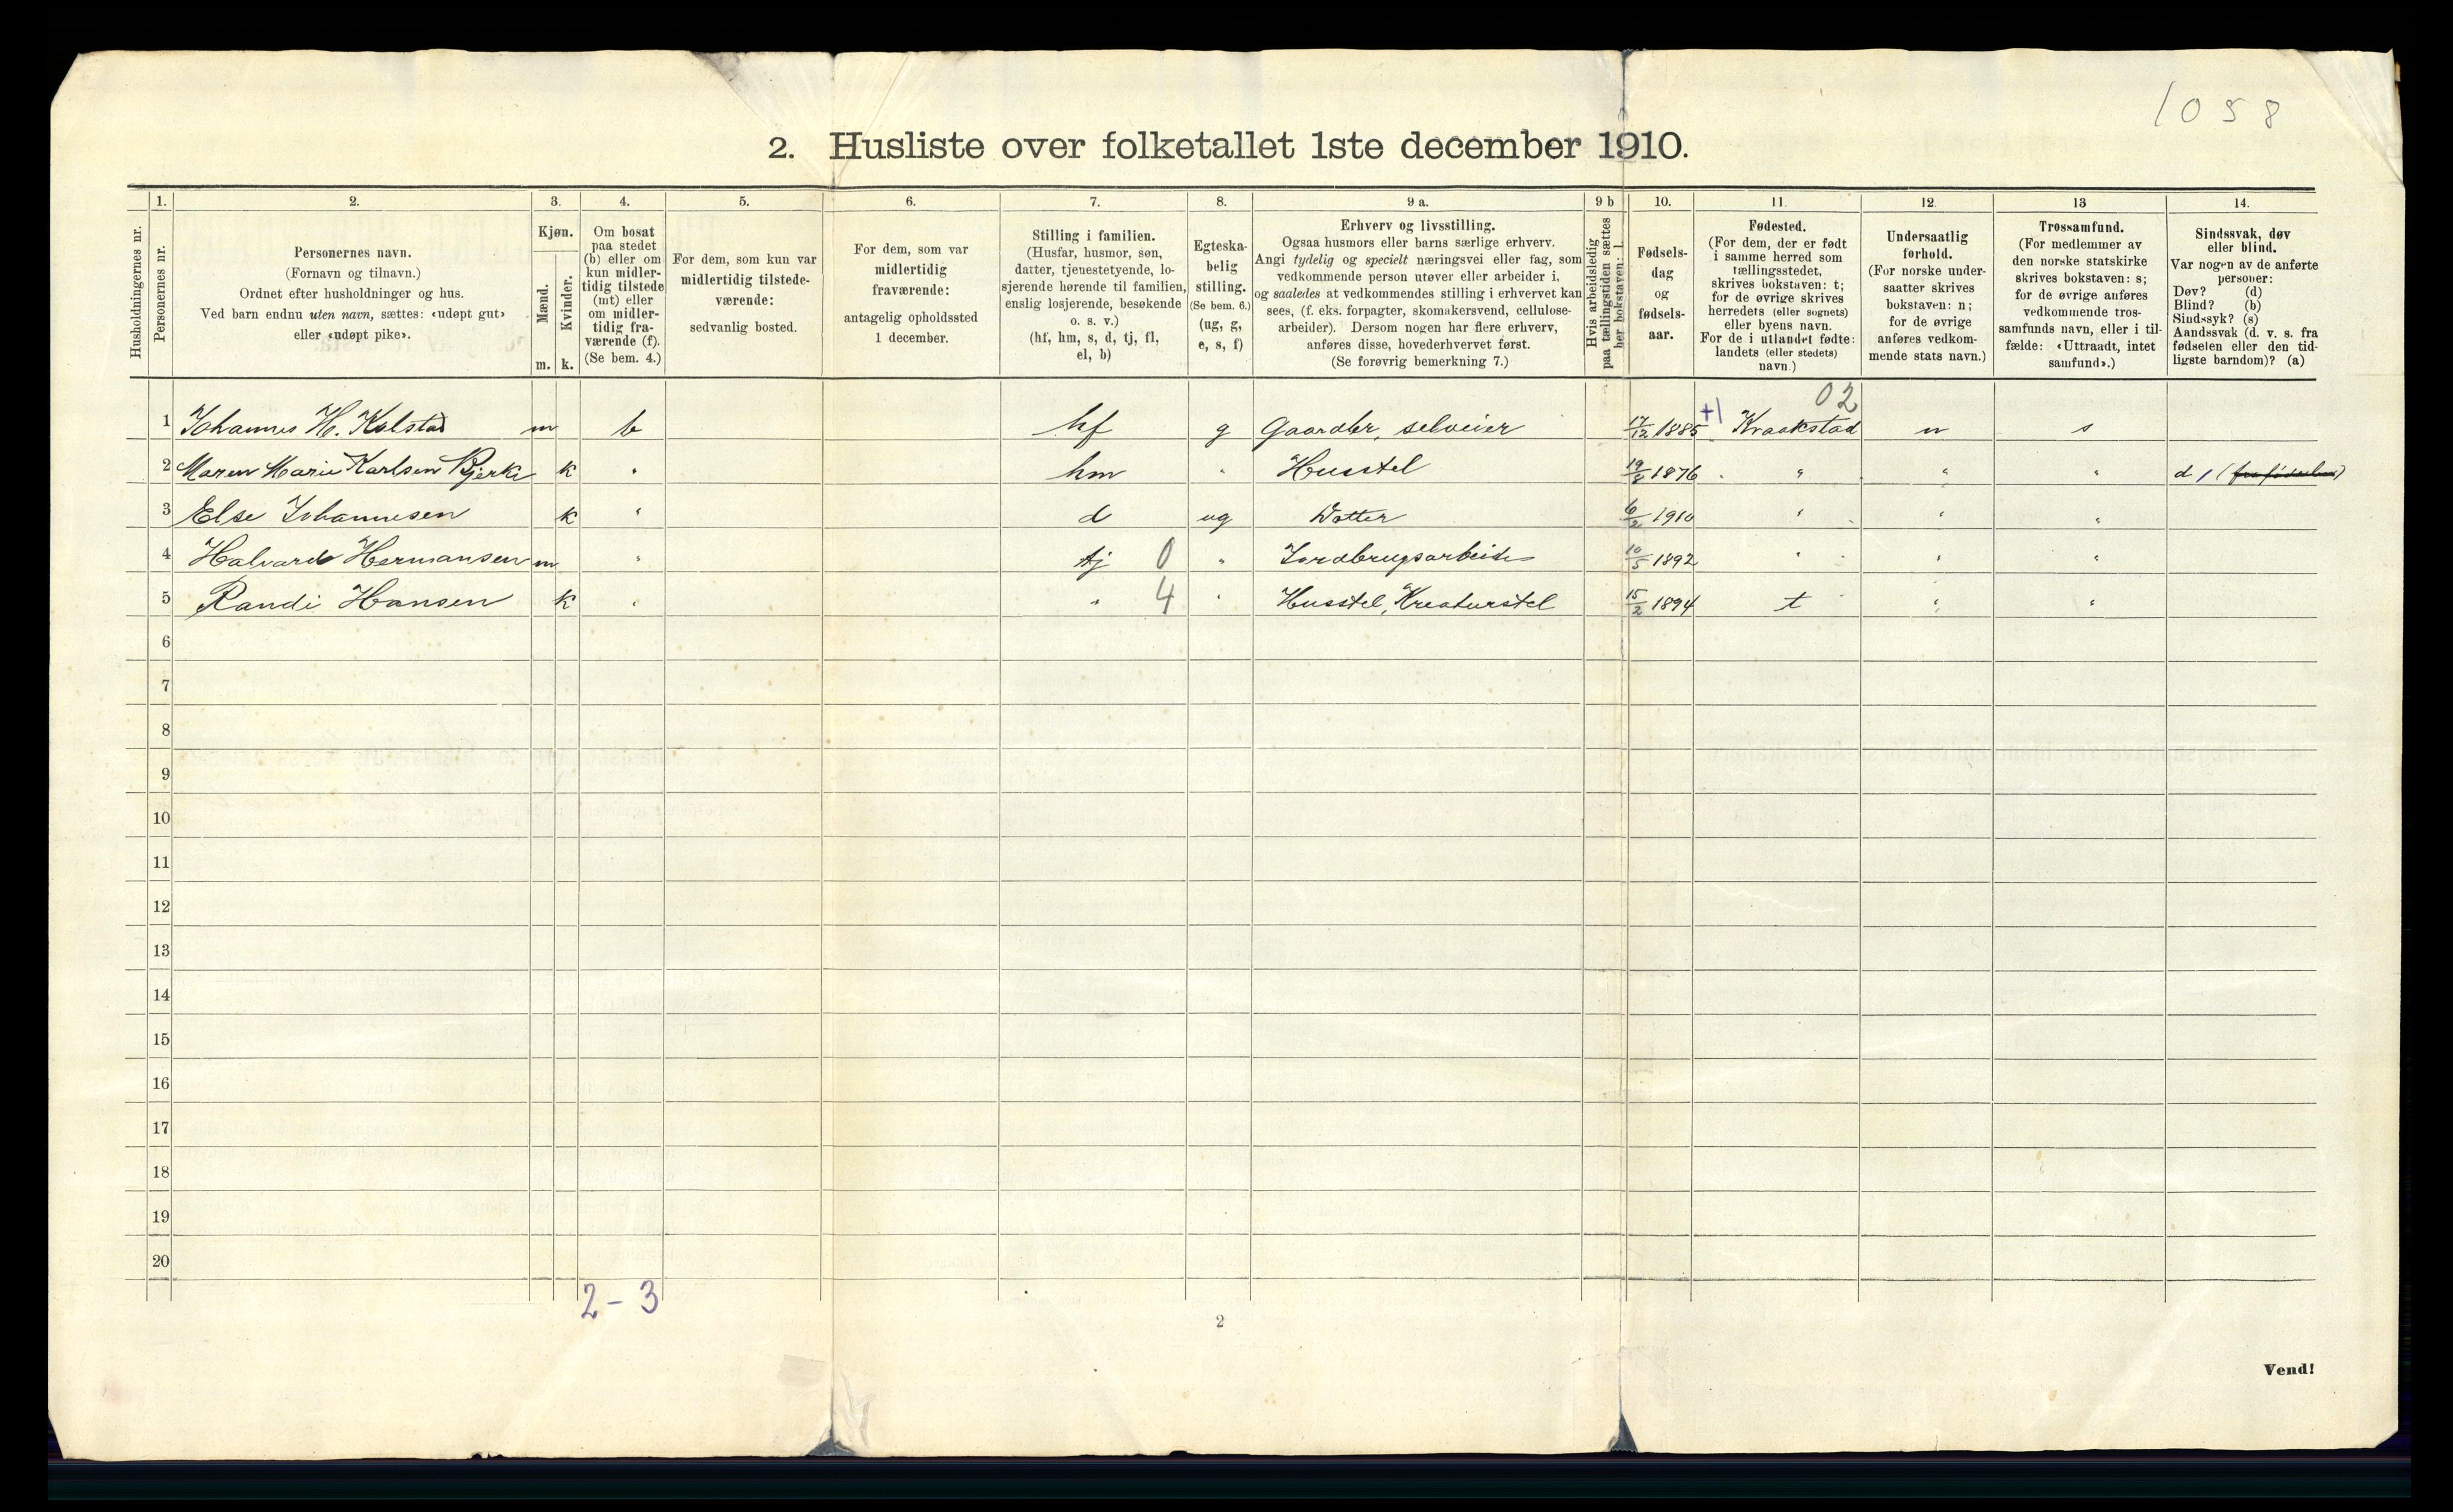 1058
2. Husliste over folketallet 1ste december 1910.
Husholdningernes nr.
1.
Personernes nr.
2.
Personernes navn.
(Fornavn og tilnavn.)
Ordnet efter husholdninger og hus.
Ved barn endnu uten navn, sættes: «udøpt gut»
eller «udøpt pike».
3.
Kjøn.
Mænd.
Kvinder.
m. k.
4.
Om bosat
paa stedet
(b) eller om
kun midler-
tidig tilstede
(mt) eller
om midler-
tidig fra-
værende (f).
(Se bem. 4.)
5.
For dem, som kun var
midlertidig tilstede-
værende:
sedvanlig bosted.
6.
For dem, som var
midlertidig
fraværende:
antagelig opholdssted
1 december.
7.
Stilling i familien.
(Husfar, husmor, søn,
datter, tjenestetyende, lo-
sjerende hørende til familien,
enslig losjerende, besøkende
o. s. v.)
(hf, hm, s, d, tj, fl,
el, b)
8.
Egteska-
belig
stilling.
(Se bem. 6.)
(ug, g,
e, s, f)
9 a.
Erhverv og livsstilling.
Ogsaa husmors eller barns særlige erhverv.
Angi tydelig og specielt næringsvei eller fag, som
vedkommende person utøver eller arbeider i,
og saaledes at vedkommendes stilling i erhvervet kan
sees, (f. eks. forpagter, skomakersvend, cellulose-
arbeider). Dersom nogen har flere erhverv,
anføres disse, hovederhvervet først.
(Se forøvrig bemerkning 7.)
9 b
Hvis arbeidsledig
paa tællingstiden sættes
her bokstaven: l.
10.
Fødsels-
dag
og
fødsels-
aar.
11.
Fødested.
(For dem, der er født
i samme herred som
tællingsstedet,
skrives bokstaven: t;
for de øvrige skrives
herredets (eller sognets)
eller byens navn.
For de i utlandet fødte:
landets (eller stedets)
navn.)
12.
Undersaatlig
forhold.
(For norske under-
saatter skrives
bokstaven: n;
for de øvrige
anføres vedkom-
mende stats navn.)
13
Trossamfund.
(For medlemmer av
den norske statskirke
skrives bokstaven: s;
for de øvrige anføres
vedkommende tros-
samfunds navn, eller i til-
fælde: «Uttraadt, intet
samfund».)
14.
Sindssvak, døv
eller blind.
Var nogen av de anførte
personer:
Døv? (d)
Blind? (b)
Sindssyk? (s)
Aandssvak (d. v. s. fra
fødselen eller den tid-
ligste barndom)? (a)
02
1 Johannes H. Kolstad m b hf g Gaardbr, selveier 17/12 1885 +1 Kraakstad n s
2 Maren Marie Karlsen Bjerke k " hm " Husstel 19/8 1876 " " " d, (fra fødselen)
3 Else Johannesen k " d ug Datter 6/2 1910 " " "
4 Halvard Hermansen m " tj 0 " Jordbrugsarbeide 10/5 1892 " " "
5 Randi Hansen k " " 4 " Husstel, Kreaturstel 15/2 1894 t " "
6
7
8
9
10
11
12
13
14
15
16
17
18
19
20
2-3
2
Vend!